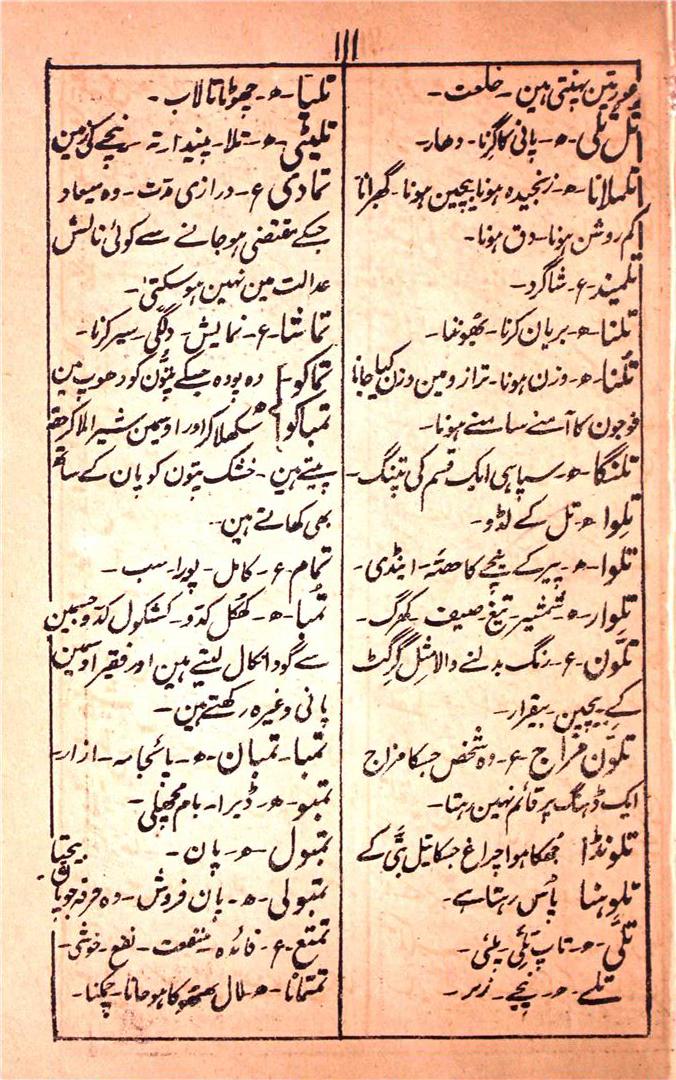 ۱۱۱
عورتین پہنتی ہین - خلعت -
تل تلی - ھ - پانی کا گرنا - دھار -
تلملانا - ھ - رنجیدہ ہونا بیچین ہونا - گھبرانا
کم روشن ہونا - دق ہونا -
تلمیذ - ع - شاگرد -
تلنا - ھ - بریان کرنا - بھوننا -
تُلنا - ھ - وزن ہونا - ترازو مین وزن کیا جانا
فوجون کا آمنے سامنے ہونا -
تلنگا - ھ - سپاہی ایک قسم کی پتنگ -
تِلوا - ھ - تل کے لڈو -
تلوا - ھ - پیر کے نیچے کا حصہ - اینڈی -
تلوار - ھ - شمشیر - تیغ - صیف - کھرگ -
تلّون - ع - رنگ بدلنے والا مثل گرگٹ
کے - بیچین - بیقرار -
تلّون مزاج - ع - وہ شخص جسکا مزاج
ایک ڈہنگ پر قائم نہین رہتا -
تلونڈا جھکا ہوا چراغ جسکا تیل بتی کے
تلوہنا پاس رہتا ہے -
تلّی - ھ - تاپ تلّی - پلئی -
تلے - ھ - نیچے - زیر -
تلیّا - ھ - چھوٹا تالاب -
تلیٹی - ھ - تلا - پیندا - تہ - نیچے کی زمین
تمادی - ع - درازی مدت - وہ میعاد
جسکے مقتضی ہو جانے سے کوئی نالش
عدالت مین نہین ہو سکتی -
تماشا - ع - نمایش - دلگی - سیر کرنا -
تماکو - وہ پودہ جسکے پتّون کو دھوپ مین
تمباکو - ھ - سکھلا کر اور اوسمین شیرا ملا کر حقہ
پیتے ہین - خشک پتون کو پان کے ساتھ
بھی کھاتے ہین -
تمام - ع - کامل - پورا - سب -
تمبا - ھ - کھکل کدو - کشکول کدو جسمین
سے گودا نکال لیتے ہین اور فقیر اوسمین
پانی وغیرہ رکھتے ہین -
تمبا - تمبان - ھ - پائجامہ - ازار -
تمبو - ھ - ڈیرا - بام مچھلی -
تمبول - ھ - پان -
تمبولی - ھ - پان فروش - وہ حرفہ جو پان بیچتا
تمتع - ع - فائدہ - منفعت - نفع - خوشی -
تمتمانا - ھ - لال بھبھوکا ہو جانا - چمکنا -